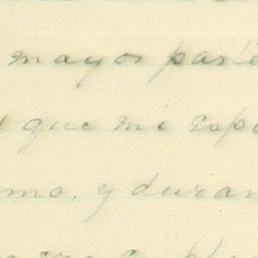 mayor parte
que me espe
mo, y duran